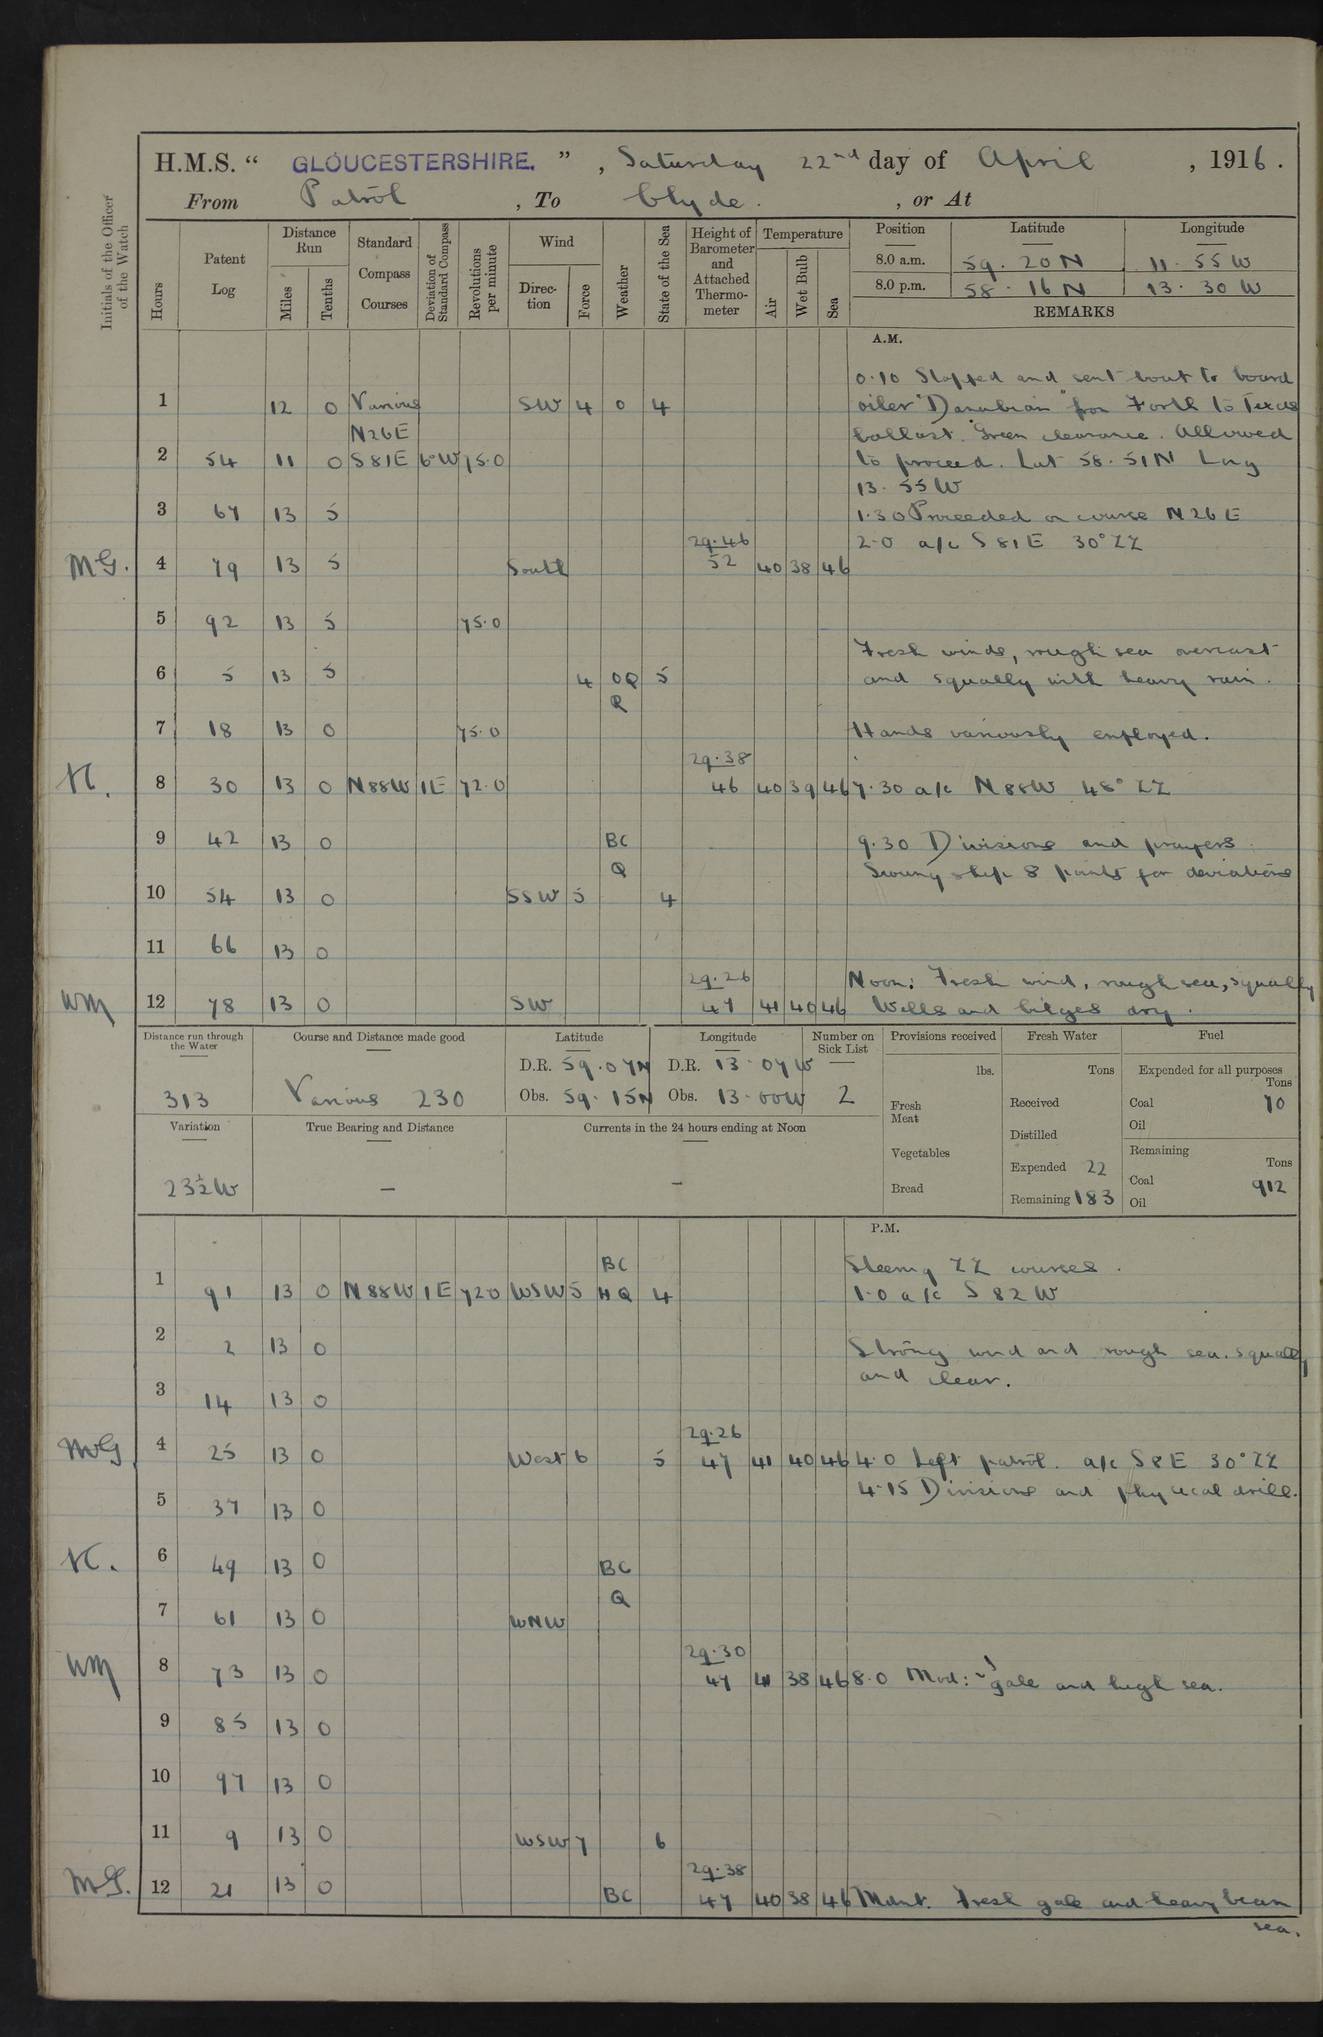 H.M.S. " GLOUCESTERSHIRE. ", Saturday 22nd day of April, 1916.
From Patrol, To Clyde., or At
Initials of the Officer of the Watch
Hours
Patent Log
Distance Run
Miles
Tenths
Standard Compass Courses
Deviation of Standard Compass
Revolutions per minute
Wind
Direction
Force
Weather
State of the Sea
Height of Barometer and Attached Thermometer
Temperature
Air
Wet Bulb
Sea
Position Latitude Longitude
8.0 a.m. 59.20 N 11.55 W
8.0 p.m. 58.16 N 13.30 W
REMARKS
A.M.
0.10 Stopped and sent boat to board
1 12 0 Various SW 4 0 4 oiler "Danubian" from Forth to Texas
N26E ballast. Green clearance. Allowed
2 54 11 0 S81E 6°W 75.0 to proceed. Lat 58.51N Long
13.55W
3 67 13 5 1.30 Proceeded on course N26E
29.46 2.0 a/c S81E 30° ZZ
MG. 4 79 13 5 South 52 40 38 46
5 92 13 5 75.0
Fresh winds, rough sea overcast
6 5 13 5 4 OQ 5 and squally with heavy rain.
R
7 18 13 0 75.0 Hands variously employed.
29.38
8 30 13 0 N88W 1E 72.0 46 40 39 46 7.30 a/c N88W 45° ZZ
9 42 13 0 BC 9.30 Divisions and prayers.
Q Swung ship 8 points for deviations
10 54 13 0 SSW 5 4
11 66 13 0
29.26 Noon: Fresh wind, rough sea, squally
WM 12 78 13 0 SW 47 41 40 46 Wells and bilges dry.
Distance run through the Water
313
Course and Distance made good
Various 230
Latitude
D.R. 59.07N
Obs. 59.15N
Longitude
D.R. 13.07W
Obs. 13.00W
Number on Sick List
2
Provisions received
lbs.
Fresh Meat
Vegetables
Bread
Fresh Water
Tons
Received
Distilled
Expended 22
Remaining 183
Fuel
Expended for all purposes
Tons
Coal 70
Oil
Remaining
Tons
Coal 912
Oil
Variation
23½W
True Bearing and Distance
—
Currents in the 24 hours ending at Noon
—
P.M.
BC Steering ZZ courses.
1 91 13 0 N88W 1E 720 WSW 5 HQ 4 1.0 a/c S82W
2 2 13 0 Strong wind and rough sea. squally
and clear.
3 14 13 0
29.26
MG 4 25 13 0 West 6 5 47 41 40 46 4.0 Left patrol. a/c S8E 30° ZZ
4.15 Divisions and physical drill.
5 37 13 0
6 49 13 0 BC
Q
7 61 13 0 WNW
29.30
WM 8 73 13 0 47 41 38 46 8.0 Mod: gale and high sea.
9 85 13 0
10 97 13 0
11 9 13 0 WSW 7 6
29.38
MG. 12 21 13 0 BC 47 40 38 46 Mdnt. Fresh gale and heavy beam
sea.